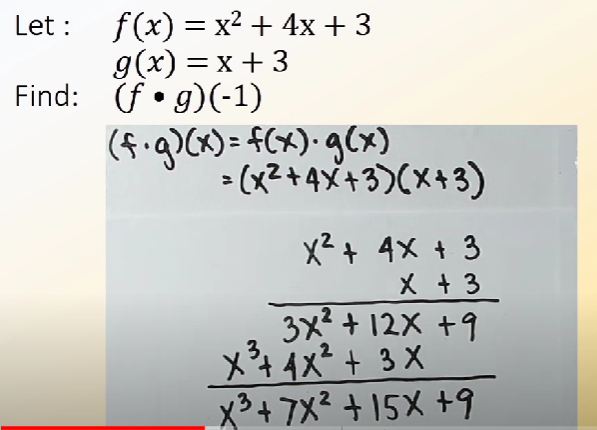 Let : f(x) = x² + 4x + 3
g(x) = x + 3
Find: (f • g)(-1)
(f·g)(x) = f(x)·g(x)
= (x²+4x+3)(x+3)
x² + 4x + 3
x + 3
3x² + 12x + 9
x³ + 4x² + 3x
x³ + 7x² + 15x + 9